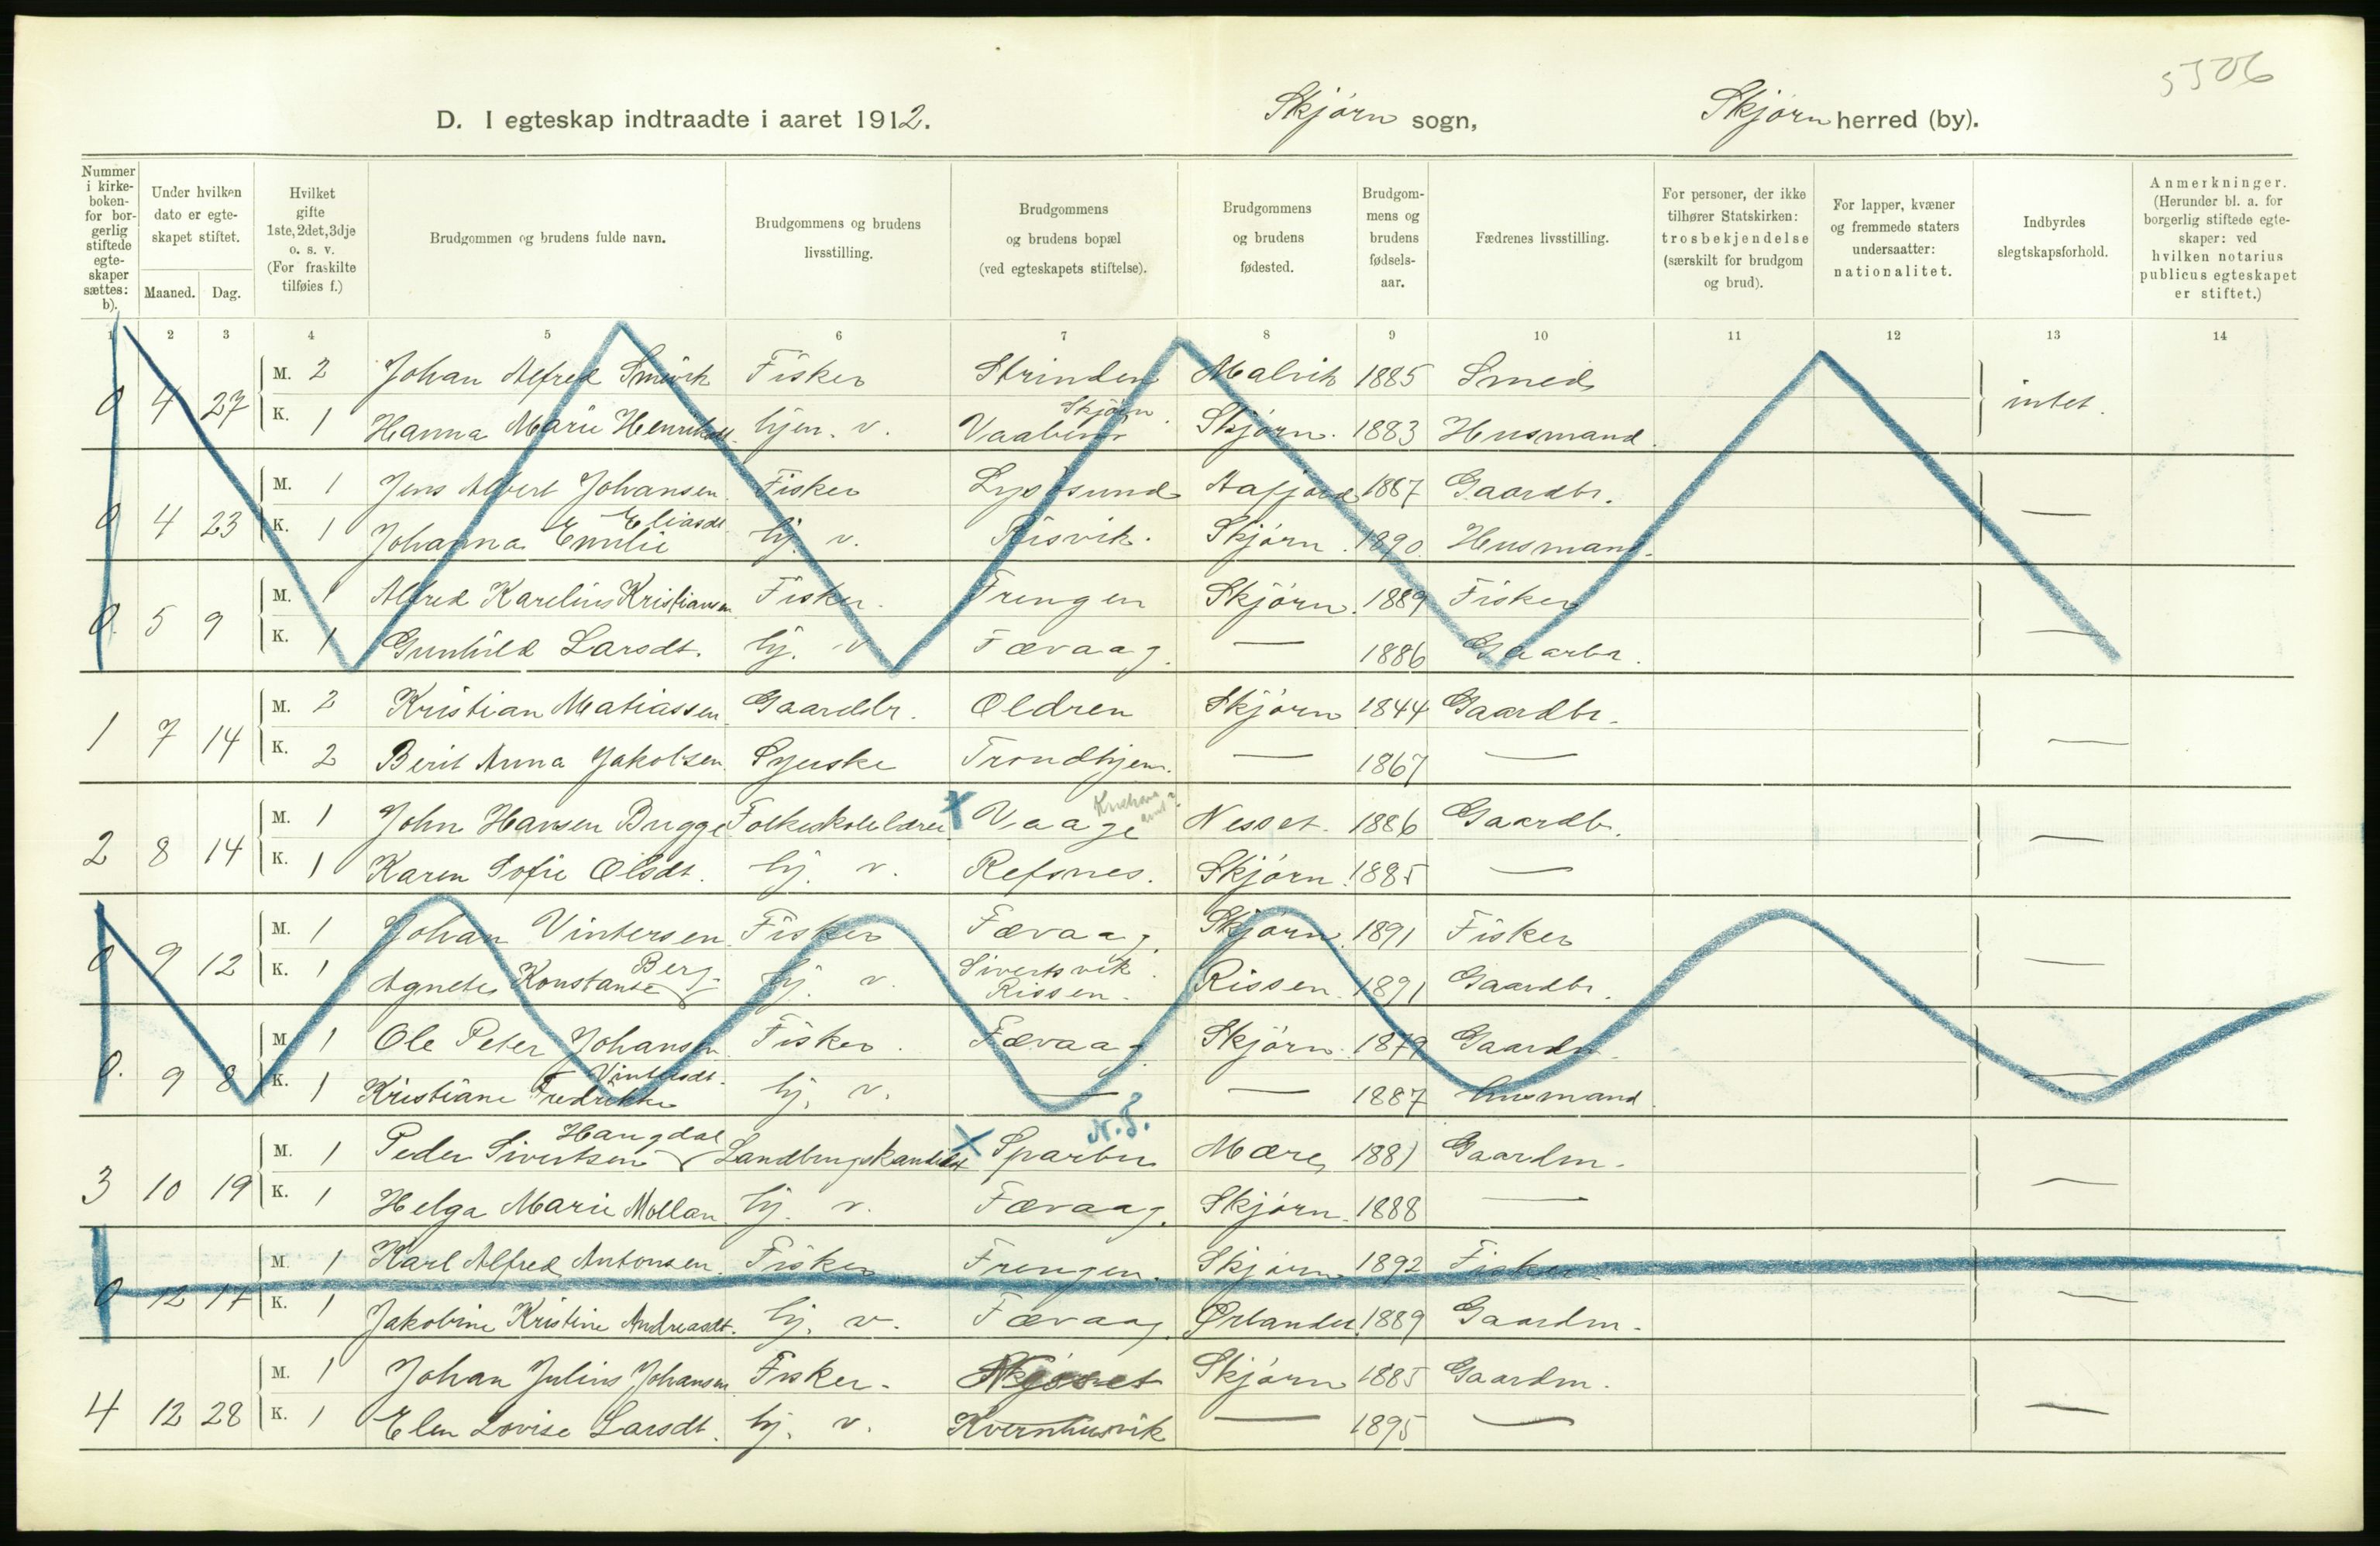 5506
D. I egteskap indtraadte i aaret 1912. Skjørn sogn, Skjørn herred (by).
Nummer i kirke-boken- for bor-gerlig stiftede egte-skaper sættes: b). Under hvilken dato er egte-skapet stiftet. Maaned. Dag. Hvilket gifte 1ste, 2det, 3dje o. s. v. (For fraskilte tilføies f.) Brudgommen og brudens fulde navn. Brudgommens og brudens livsstilling. Brudgommens og brudens bopæl (ved egteskapets stiftelse). Brudgommens og brudens fødested. Brudgom-mens og brudens fødsels-aar. Fædrenes livsstilling. For personer, der ikke tilhører Statskirken: trosbekjendelse (særskilt for brudgom og brud). For lapper, kvæner og fremmede staters undersaatter: nationalitet. Indbyrdes slegtskapsforhold. Anmerkninger. (Herunder bl. a. for borgerlig stiftede egte-skaper: ved hvilken notarius publicus egteskapet er stiftet.)
1 2 3 4 5 6 7 8 9 10 11 12 13 14
M. 2 Johan Alfred Smevik Fisker Strinden Malvik 1885 Smed
0 4 27 K. 1 Hanna Marie Henriksdt. hjem. v. Skjørn Skjørn. 1883 Husmand. intet.
M. 1 Jens Albert Johansen Fisker Lysøsund Aafjord 1887 Gaardbr.
0 4 23 K. 1 Johanna Emilie Eliasdt. hj. v. Risvik. Skjørn. 1890. Husmand. —
M. 1 Alfred Karelius Kristiansen Fisker. Frengen Skjørn. 1889 Fisker
0. 5 9 K. 1 Gunhild Larsdt. hj. v. Fævaag. — 1886 Gaarbr. —
M. 2 Kristian Matiassen Gaardbr. Oldren Skjørn 1844 Gaardbr.
1 7 14 K. 2 Berit Anna Jakobsen Syerske Trondhjem. — 1867 — —
M. 1 John Hansen Brugge Folkeskolelærer X Vaage Nesset. 1886 Gaardb.
2 8 14 K. 1 Karen Sofie Olsdt. hj. v. Refsnes. Skjørn. 1885 — —
M. 1 Johan Vintersen Fisker Fævaag. Skjørn. 1891 Fisker
0 9 12 K. 1 Agnete Konstanse Berg hj. v. Sivertsvik Rissen. Rissen 1891 Gaardbr. —
M. 1 Ole Peter Johansen Fisker. Fævaag. Skjørn. 1879 Gaardm.
0. 9 8 K. 1 Kristiane Fredrikke Vintersdt. hj. v. — — 1887 husmand. —
M. 1 Peder Sivertsen Haugdal Landbrugskandidat X Sparbu N. T. Mære 1881 Gaardm.
3 10 19 K. 1 Helga Marie Mollan hj. v. Fævaag. Skjørn. 1888 — —
M. 1 Karl Alfred Antonsen. Fisker Frengen. Skjørn 1892 Fisker
0 12 17 K. 1 Jakobine Kristine Andreasdt. hj. v. Fævaag. Ørlandet. 1889 Gaardm. —
M. 1 Johan Julius Johansen Fisker. Skjørn 1885 Gaardm.
4 12 28 K. 1 Elen Lovise Larsdt. hj. v. Kvernhusvik — 1895 — —